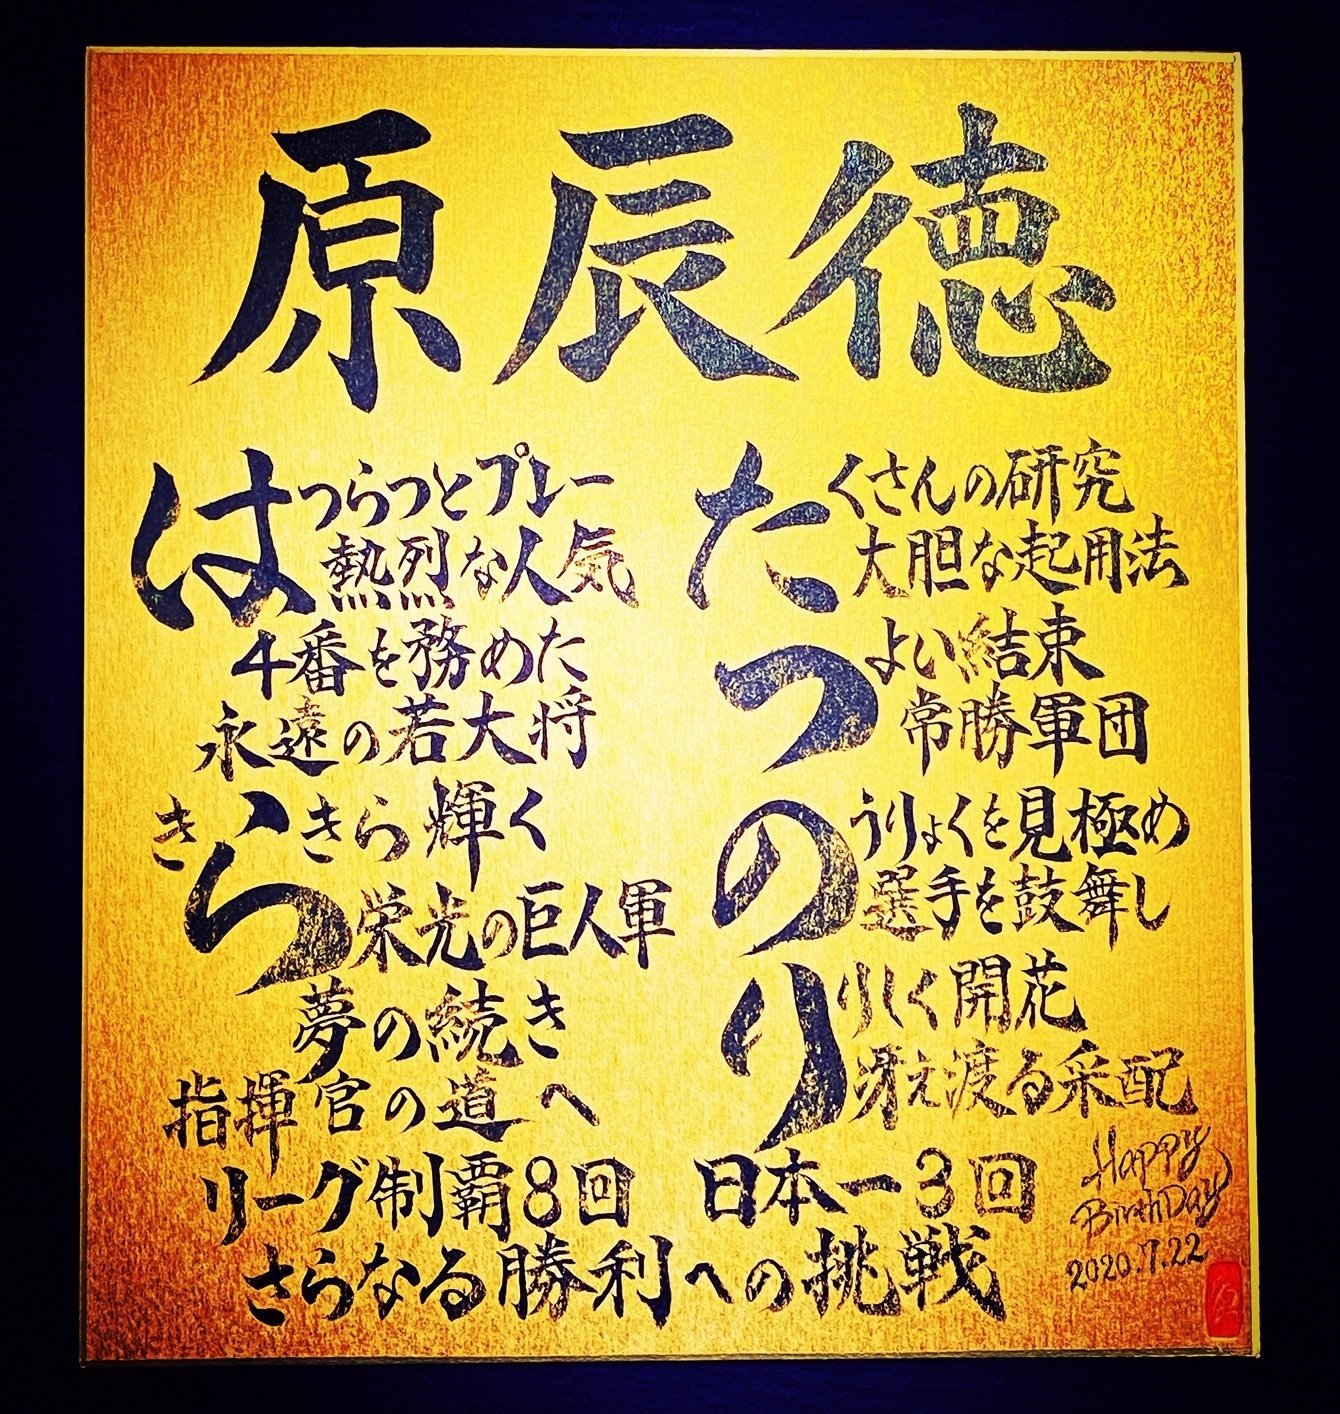 原辰徳
はつらつとプレー
熱烈な人気
4番を務めた
永遠の若大将
きらきら輝く
栄光の巨人軍
夢の続き
指揮官の道へ
たくさんの研究
大胆な起用法
つよい結束
常勝軍団
のうりょくを見極め
選手を鼓舞し
りりしく開花
冴え渡る采配
リーグ制覇8回 日本一3回
さらなる勝利への挑戦
Happy
BirthDay
2020.7.22